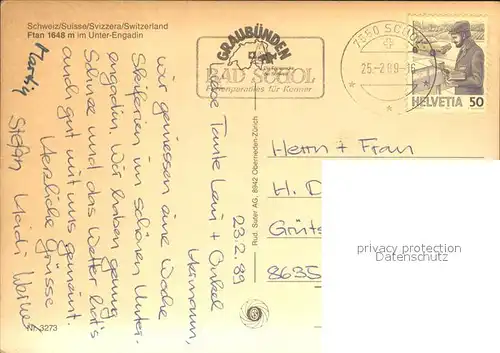 Schweiz/Suisse/Svizzera/Switzerland
Ftan 1648 m im Unter-Engadin
GRAUBÜNDEN
BAD SCUOL
Ferienparadies für Kenner
7550 SCUOL
25.-2.89-16
HELVETIA 50
23.2.89
Liebe Tante Leni + Onkel
Hermann,
wir geniessen eine Woche
Skiferien im schönen Unter-
engadin. Wir haben genug
Schnee und das Wetter hat's
auch gut mit uns gemeint.
Herzliche Grüsse
Stefan Heidi Werner
Martin
Rud. Suter AG, 8942 Oberrieden-Zürich
Herrn + Frau
H. D
Grüts
8635
privacy protection
oldthing.com
Nr. 3273